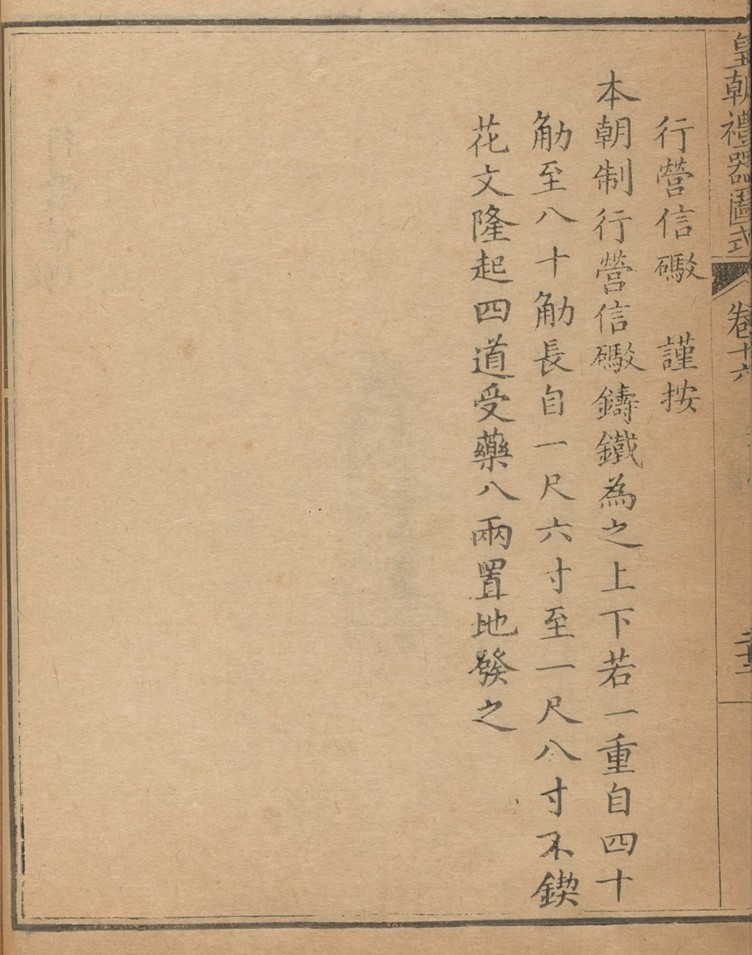 皇朝禮器圖式 卷十六
行營信礮 謹按
本朝制行營信礮鑄鐵為之上下若一重自四十
觔至八十觔長自一尺六寸至一尺八寸不鍥
花文隆起四道受藥八兩置地發之